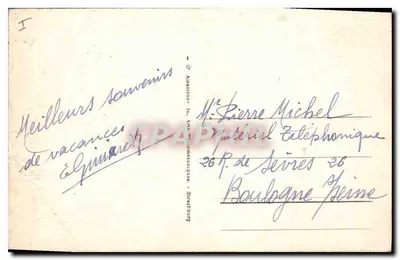 I
Meilleurs souvenirs
de vacances
Mr Pierre Michel
Matériel Téléphonique
26 R. de Sèvres 26
Boulogne s/Seine
CARTEPOSTALE
Strasbourg